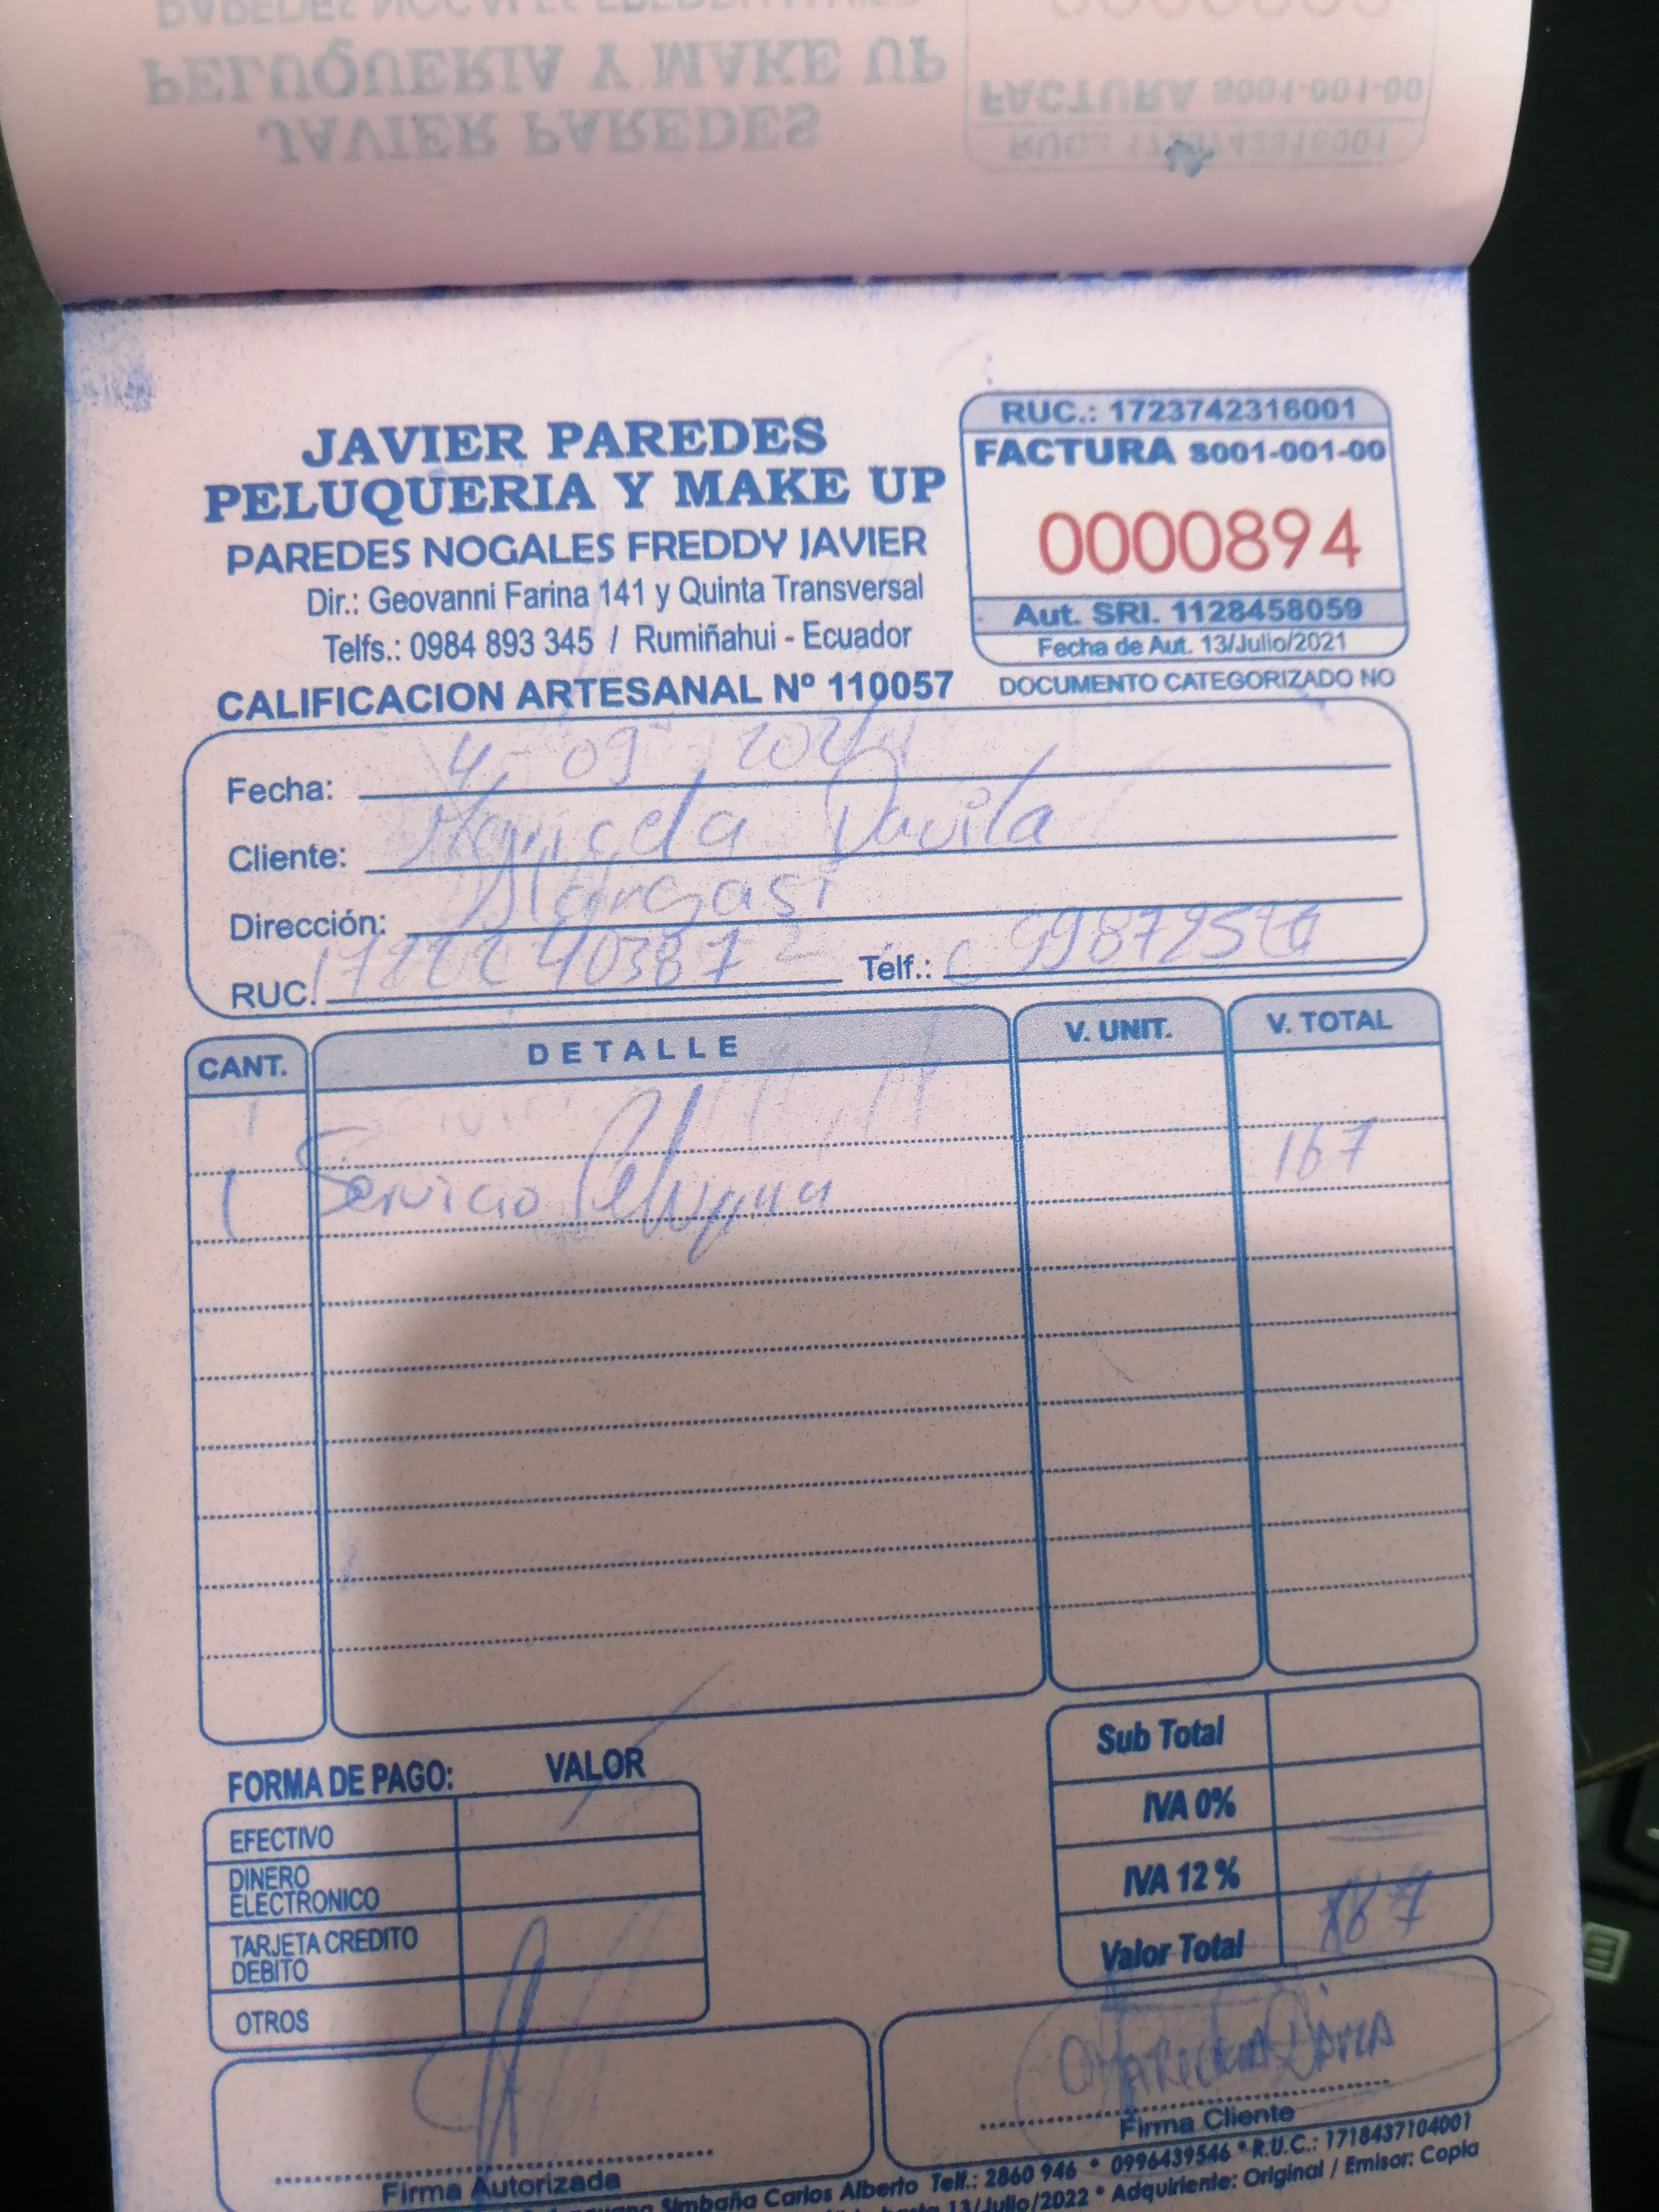 JAVIER PAREDES
PELUQUERIA Y MAKE UP
PAREDES NOGALES FREDDY JAVIER
Dir.: Geovanni Farina 141 y Quinta Transversal
Telfs.: 0984 893 345 / Rumiñahui - Ecuador
CALIFICACION ARTESANAL Nº 110057
RUC.: 1723742316001
FACTURA S001-001-00
0000894
Aut. SRI. 1128458059
Fecha de Aut. 13/Julio/2021
DOCUMENTO CATEGORIZADO NO
Fecha: 4-09
Cliente: Maricela Davila
Dirección:
RUC.
Telf.:
CANT. DETALLE V. UNIT. V. TOTAL
1 Servicio 167
FORMA DE PAGO: VALOR
EFECTIVO
DINERO ELECTRONICO
TARJETA CREDITO DEBITO
OTROS
Sub Total
IVA 0%
IVA 12 %
Valor Total 167
Firma Autorizada
Firma Cliente
Simbaña Carlos Alberto Telf.: 2860 946 * 0996439546 * R.U.C.: 1718437104001
hasta 13/Julio/2022 * Adquiriente: Original / Emisor: Copia